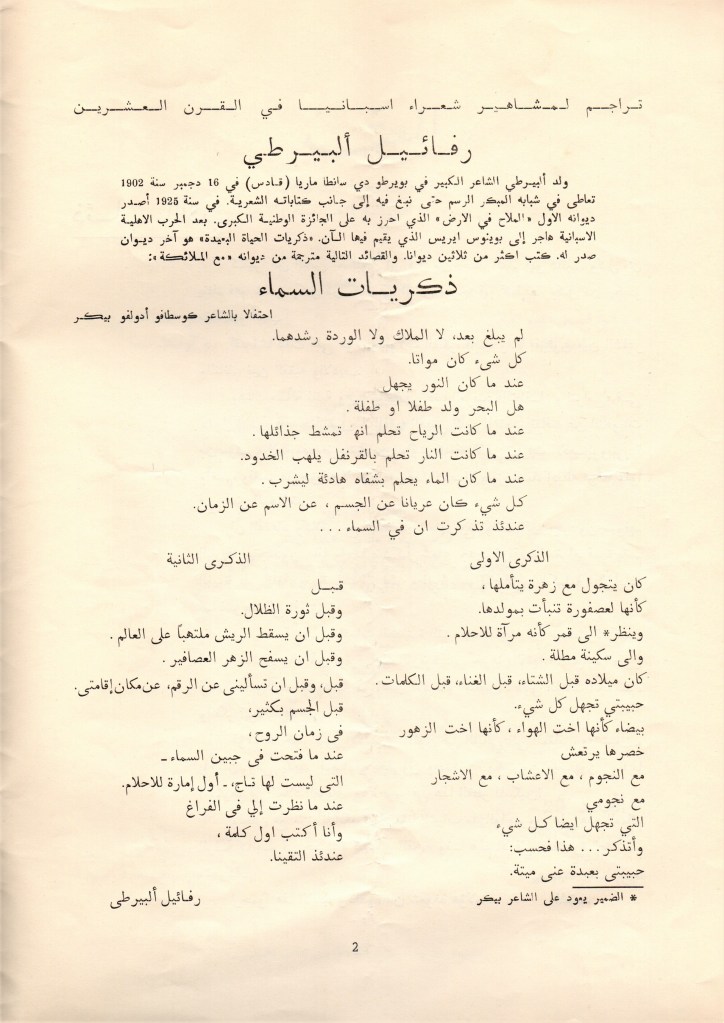 تراجم لمشاهير شعراء اسبانيا في القرن العشرين
رفائيل ألبيرطي
ولد ألبيرطي الشاعر الكبير في بويرطو دي سانطا ماريا (قادس) في 16 دجمبر سنة 1902
تعاطى في شبابه المبكر الرسم حتى نبغ فيه إلى جانب كتاباته الشعرية. في سنة 1925 أصدر
ديوانه الاول «الملاح في الارض» الذي احرز به على الجائزة الوطنية الكبرى. بعد الحرب الاهلية
الاسبانية هاجر إلى بوينوس ايريس الذي يقيم فيها الآن. «ذكريات الحياة البعيدة» هو آخر ديوان
صدر له. كتب اكثر من ثلاثين ديوانا. والقصائد التالية مترجمة من ديوانه «مع الملائكة»:
ذكريات السماء
احتفالا بالشاعر كوسطافو أدولفو بيكر
لم يبلغ بعد، لا الملاك ولا الوردة رشدهما.
كل شىء كان مواتا.
عند ما كان النور يجهل
هل البحر ولد طفلا او طفلة.
عند ما كانت الرياح تحلم انها تمشط جذائلها.
عند ما كانت النار تحلم بالقرنفل يلهب الخدود.
عند ما كان الماء يحلم بشفاه هادئة ليشرب.
كل شيء كان عريانا عن الجسم، عن الاسم عن الزمان.
عندئذ تذكرت ان في السماء...
الذكرى الاولى
كان يتجول مع زهرة يتأملها،
كأنها لعصفورة تنبأت بمولدها.
وينظر* الى قمر كأنه مرآة للاحلام.
والى سكينة مطلة.
كان ميلاده قبل الشتاء، قبل الغناء، قبل الكلمات.
حبيبتي تجهل كل شيء.
بيضاء كأنها اخت الهواء، كأنها اخت الزهور
خصرها يرتعش
مع النجوم، مع الاعشاب، مع الاشجار
مع نجومي
التي تجهل ايضا كل شيء
وأتذكر... هذا فحسب:
حبيبتى بعبدة عنى ميتة.
* الضمير يعود على الشاعر بيكر
الذكرى الثانية
قبل
وقبل ثورة الظلال.
وقبل ان يسقط الريش ملتهباً على العالم.
وقبل ان يسفح الزهر العصافير.
قبل، وقبل ان تسألينى عن الرقم، عن مكان إقامتى.
قبل الجسم بكثير،
فى زمان الروح،
عند ما فتحت فى جبين السماء -
التى ليست لها تاج، - أول إمارة للاحلام.
عند ما نظرت إلي فى الفراغ
وأنا أكتب اول كلمة،
عندئذ التقينا.
رفائيل ألبيرطى
2